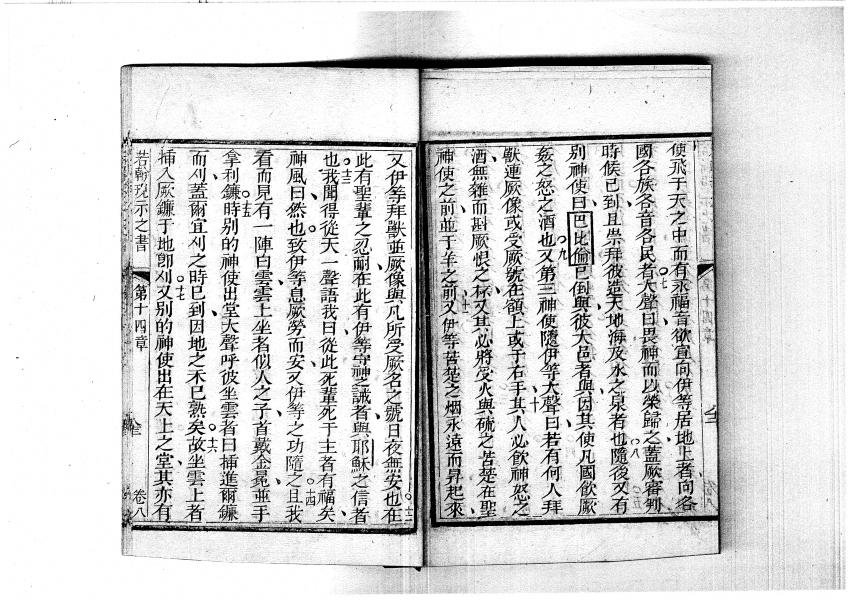 使飛于天之中而有永福音欲宣向伊等居地上者向各
國各族各音各民者七大聲曰畏神而以榮歸之蓋厥審判
時候已到且崇拜彼造天地海及水之泉者也八隨後又有
別神使曰巴比倫已倒與彼大邑者與因其使凡國飲厥
姦之怒之酒也九又第三神使隨伊等大聲曰若有何人拜
獸連厥像或受厥號在額上或于右手十其人必飲神怒之
酒無雜而斟厥恨之杯又其必將受火與硫之苦楚在聖
神使之前並于羊之前十一又伊等苦楚之烟永遠而昇起來
又伊等拜獸並厥像與凡所受厥名之號日夜無安也十二在
此有聖輩之忍耐在此有伊等守神之誡者與耶穌之信者
也十三我聞得從天一聲語我曰從此死輩死于主者有福矣
神風曰然也致伊等息厥勞而安又伊等之功隨之十四且我
看而見有一陣白雲雲上坐者似人之子首戴金冕並手
拿利鐮十五時別的神使出堂大聲呼彼坐雲者曰插進爾鐮
而刈蓋爾宜刈之時已到因地之禾已熟矣十六故坐雲上者
插入厥鐮于地卽刈十七又別的神使出在天上之堂其亦有
若翰現示之書 第十四章 卷八